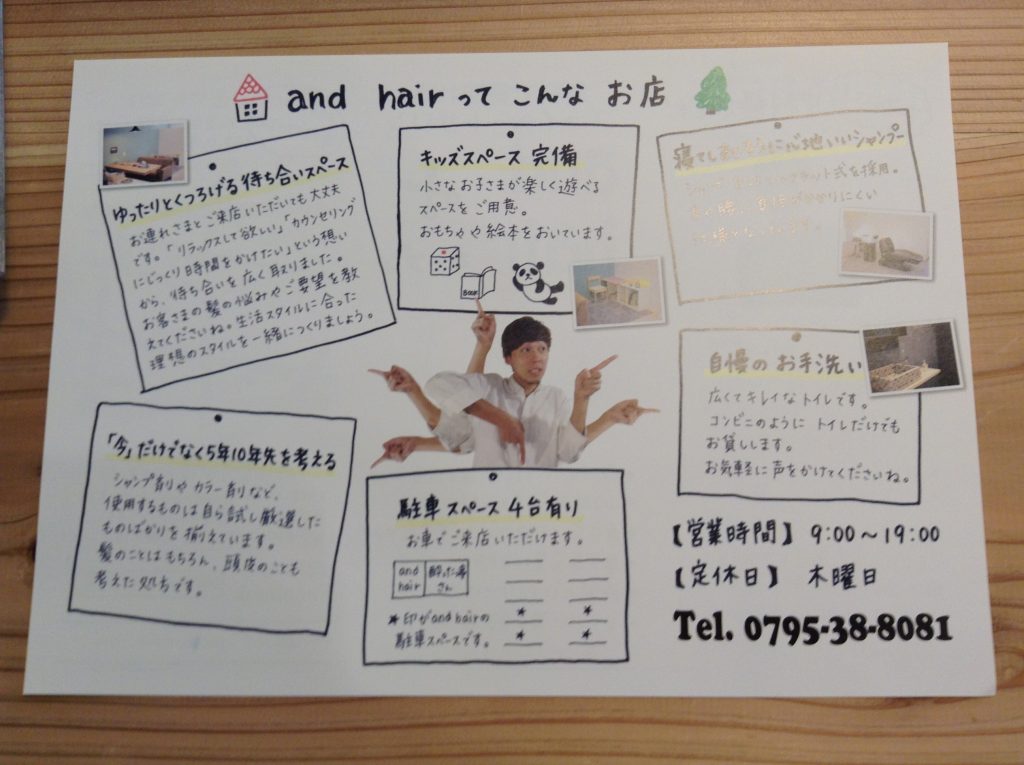 and hair って こんな お店
ゆったりとくつろげる待ち合いスペース
お連れさまとご来店いただいても大丈夫
です。「リラックスして欲しい」「カウンセリング
にじっくり時間をかけたい」という想い
から、待ち合いを広く取りました。
お客さまの髪の悩みやご要望を教
えてくださいね。生活スタイルに合った
理想のスタイルを一緒につくりましょう。
キッズスペース 完備
小さなお子さまが楽しく遊べる
スペースをご用意。
おもちゃや絵本をおいています。
BOOK
心地いいシャンプー
フラット式を採用。
かかりにくい
自慢の お手洗い
広くてキレイなトイレです。
コンビニのように トイレだけでも
お貸しします。
お気軽に声をかけてくださいね。
「今」だけでなく5年10年先を考える
シャンプ剤や カラー剤など、
使用するものは自ら試し厳選した
ものばかりを揃えています。
髪のことはもちろん、頭皮のことも
考えた処方です。
駐車スペース 4台有り
お車でご来店いただけます。
and hair
さん
★印がand hairの
駐車スペースです。
★ ★
★ ★
【営業時間】 9:00〜19:00
【定休日】 木曜日
Tel. 0795-38-8081